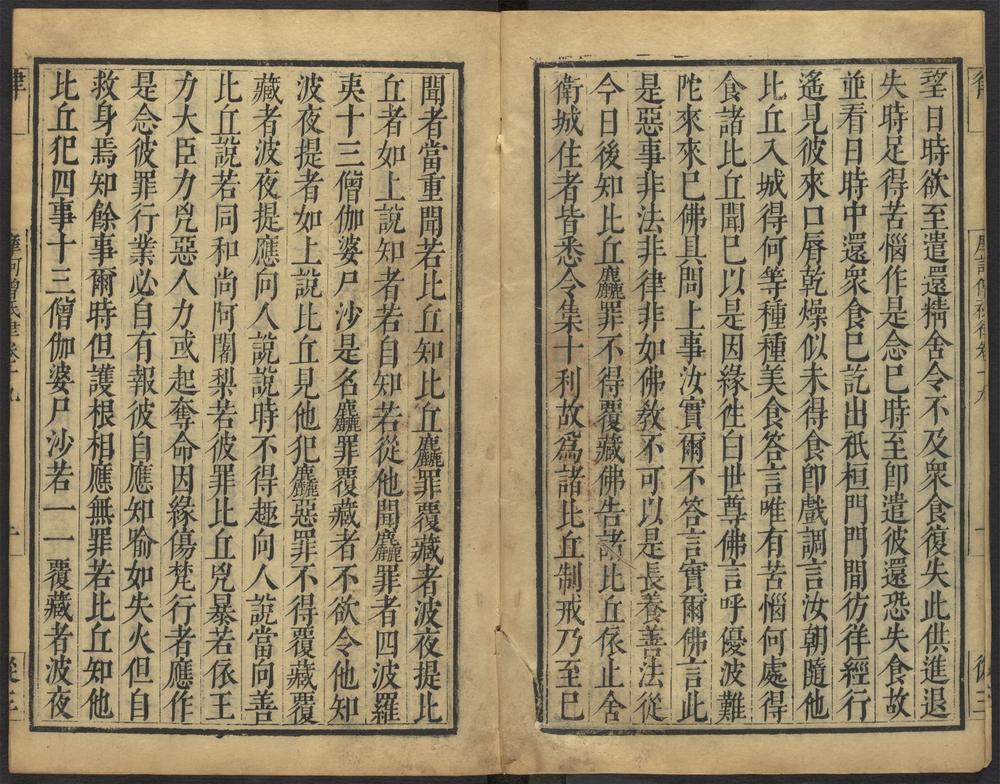 望日時欲至遣還精舍令不及衆食復失此供進退
失時足得苦惱作是念已時至卽遣彼還恐失食故
並看日時中還衆食已訖出祇桓門門間彷徉經行
遙見彼來口脣乾燥似未得食卽戲調言汝朝隨他
比丘入城得何等種種美食答言唯有苦惱何處得
食諸比丘聞已以是因緣徃白世尊佛言呼優波難
陀來來已佛具問上事汝實爾不答言實爾佛言此
是惡事非法非律非如佛敎不可以是長養善法從
今日後知比丘麤罪不得覆藏佛告諸比丘依止舍
衛城住者皆悉令集十利故爲諸比丘制戒乃至已
聞者當重聞若比丘知比丘麤罪覆藏者波夜提比
丘者如上說知者若自知若從他聞麤罪者四波羅
夷十三僧伽婆尸沙是名麤罪覆藏者不欲令他知
波夜提者如上說比丘見他犯麤惡罪不得覆藏覆
藏者波夜提應向人說說時不得趣向人說當向善
比丘說若同和尚阿闍梨若彼罪比丘兇暴若依王
力大臣力兇惡人力或起奪命因緣傷梵行者應作
是念彼罪行業必自有報彼自應知喻如失火但自
救身焉知餘事爾時但護根相應無罪若比丘知他
比丘犯四事十三僧伽婆尸沙若一一覆藏者波夜
律